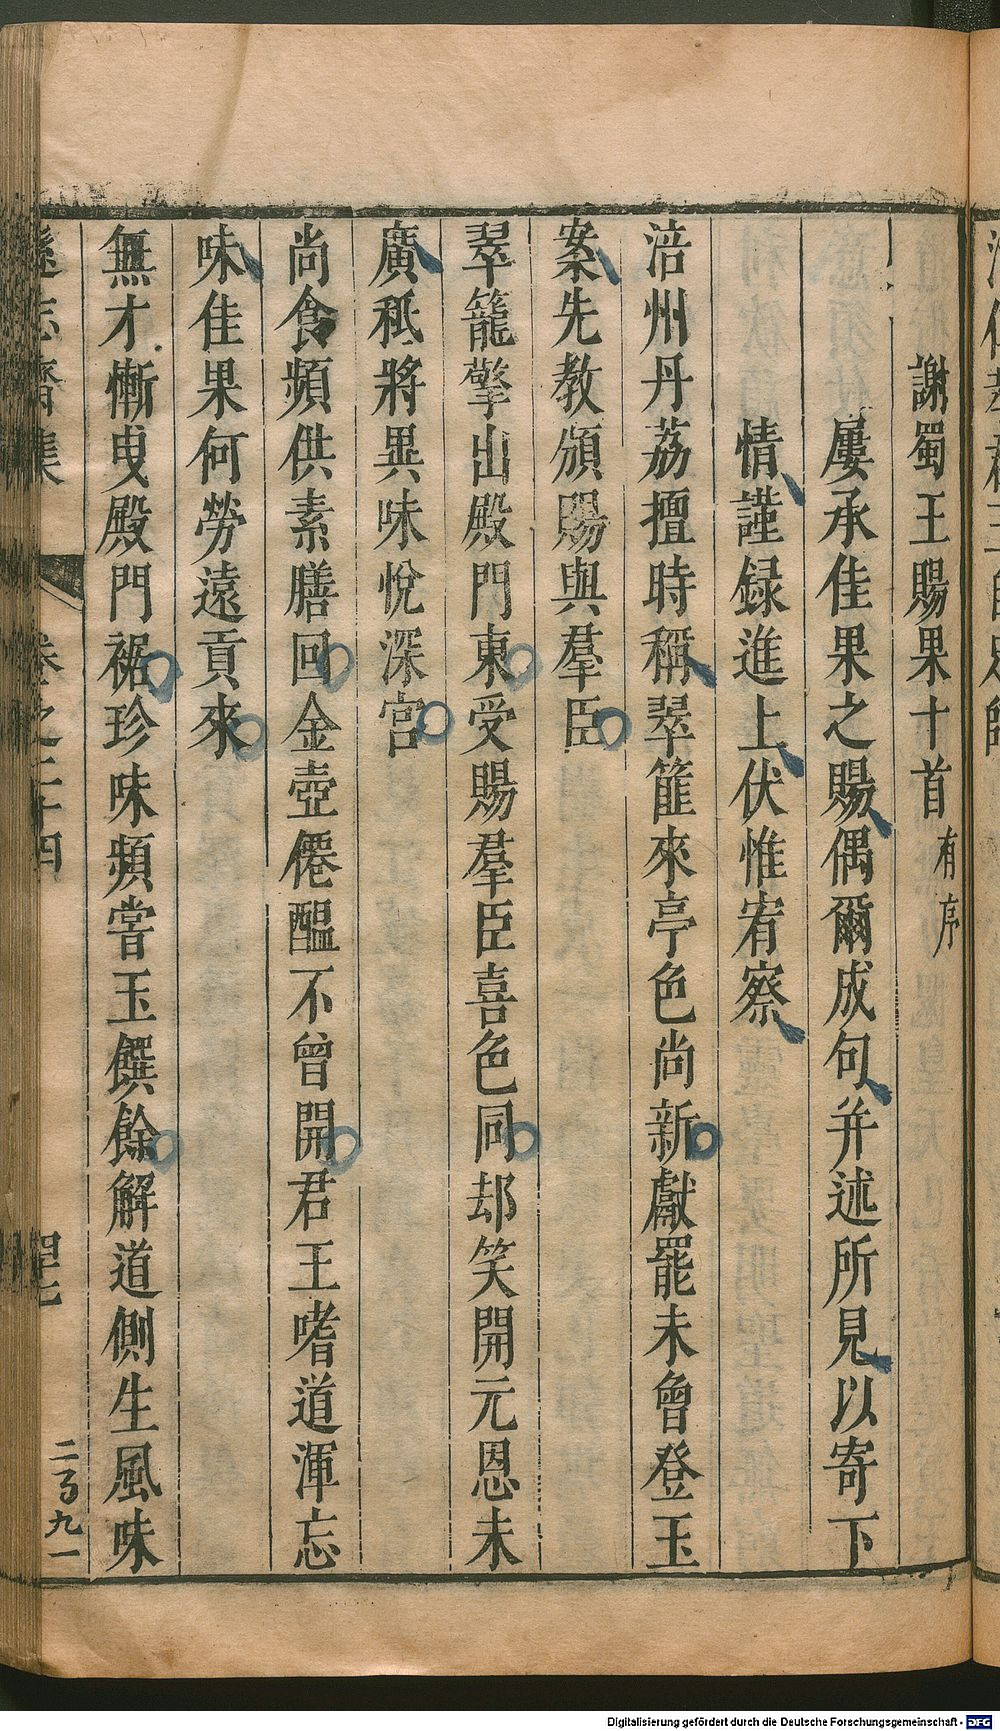 謝蜀王賜果十首有序
屢承佳果之賜偶爾成句并述所見以寄下
情謹録進上伏惟宥察
涪州丹荔擅時稱翠篚來亭色尚新獻罷未曾登玉
案先教頒賜與羣臣
翠籠擎出殿門東受賜羣臣喜色同却笑開元恩未
廣秖將異味悅深宮
尚食頻供素膳回金壺僊醖不曾開君王嗜道渾忘
味佳果何勞遠貢來
無才慚曳殿門裾珍味頻嘗玉饌餘解道側生風味
遜志齋集
卷之二十四
四七
Digitalisierung gefördert durch die Deutsche Forschungsgemeinschaft - DFG